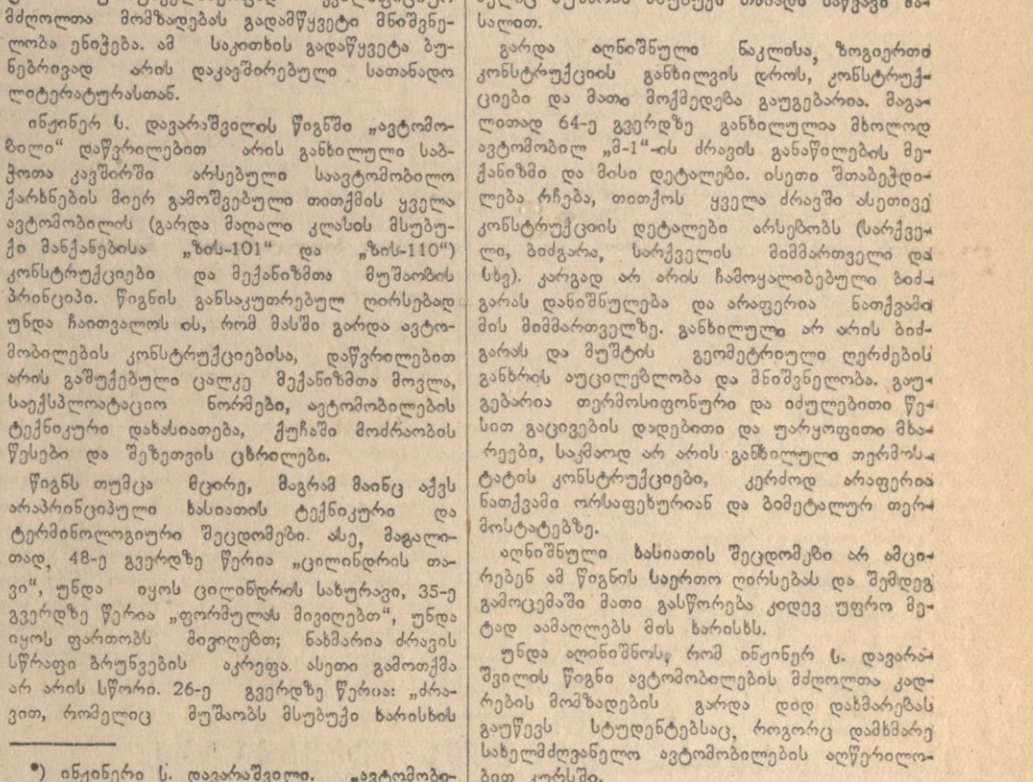 მძღოლთა მომზადებას გადამწყვეტი მნიშვნე-
ლობა ენიჭება. ამ საკითხის გადაწყვეტა ბუ-
ნებრივად არის დაკავშირებული სათანადო
ლიტერატურასთან.
ინჟინერ ს. დავარაშვილის წიგნში „ავტომო-
ბილი“ დაწვრილებით არის განხილული საბ-
ჭოთა კავშირში არსებული საავტომობილო
ქარხნების მიერ გამოშვებული თითქმის ყველა
ავტომობილის (გარდა მაღალი კლასის მსუბუ-
ქი მანქანებისა „ზის-101“ და „ზის-110“)
კონსტრუქციები და მექანიზმთა მუშაობის
პრინციპი. წიგნის განსაკუთრებულ ღირსებად
უნდა ჩაითვალოს ის, რომ მასში გარდა ავტო-
მობილების კონსტრუქციებისა, დაწვრილებით
არის გაშუქებული ცალკე მექანიზმთა მოვლა,
საექსპლოატაციო ნორმები, ავტომობილების
ტექნიკური დახასიათება, ქუჩაში მოძრაობის
წესები და შეზეთვის ცხრილები.
წიგნს თუმცა მცირე, მაგრამ მაინც აქვს
არაპრინციპული ხასიათის ტექნიკური და
ტერმინოლოგიური შეცდომები. ასე, მაგალი-
თად, 48-ე გვერდზე წერია „ცილინდრის თა-
ვი“, უნდა იყოს ცილინდრის სახურავი, 35-ე
გვერდზე წერია „ფორმულას მივიღებთ“, უნდა
იყოს ფართობს მივიღებთ; ნახმარია ძრავის
სწრაფი ბრუნვების აკრეფა. ასეთი გამოთქმა
არ არის სწორი. 26-ე გვერდზე წერია: „ძრა-
ვით, რომელიც მუშაობს მსუბუქი ხარისხის
*) ინჟინერი ს. დავარაშვილი. „ავტომობი-
სალით.
გარდა აღნიშნული ნაკლისა, ზოგიერთი
კონსტრუქციის განხილვის დროს, კონსტრუქ-
ციები და მათი მოქმედება გაუგებარია. მაგა-
ლითად 64-ე გვერდზე განხილულია მხოლოდ
ავტომობილ „მ-1“-ის ძრავის განაწილების მე-
ქანიზმი და მისი დეტალები. ისეთი შთაბეჭდი-
ლება რჩება, თითქოს ყველა ძრავში ასეთივე
კონსტრუქციის დეტალები არსებობს (სარქვე-
ლი, ბიძგარა, სარქველის მიმმართველი და
სხვ). კარგად არ არის ჩამოყალიბებული ბიძ-
გარას დანიშნულება და არაფერია ნათქვამი
მის მიმმართველზე. განხილული არ არის ბიძ-
გარას და მუშტის გეომეტრიული ღერძების
განხრის აუცილებლობა და მნიშვნელობა. გაუ-
გებარია თერმოსიფონური და იძულებითი წე-
სით გაცივების დადებითი და უარყოფითი მხა-
რეები, საკმაოდ არ არის განხილული თერმოს-
ტატის კონსტრუქციები, კერძოდ არაფერია
ნათქვამი ორსაფეხურიან და ბიმეტალურ თერ-
მოსტატებზე.
აღნიშნული ხასიათის შეცდომები არ ამცი-
რებენ ამ წიგნის საერთო ღირსებას და შემდეგ
გამოცემაში მათი გასწორება კიდევ უფრო მე-
ტად აამაღლებს მის ხარისხს.
უნდა აღინიშნოს, რომ ინჟინერ ს. დავარა-
შვილის წიგნი ავტომობილების მძღოლთა კად-
რების მომზადების გარდა დიდ დახმარებას
გაუწევს სტუდენტებსაც, როგორც დამხმარე
სახელმძღვანელო ავტომობილების აღწერილო-
ბით კურსში.